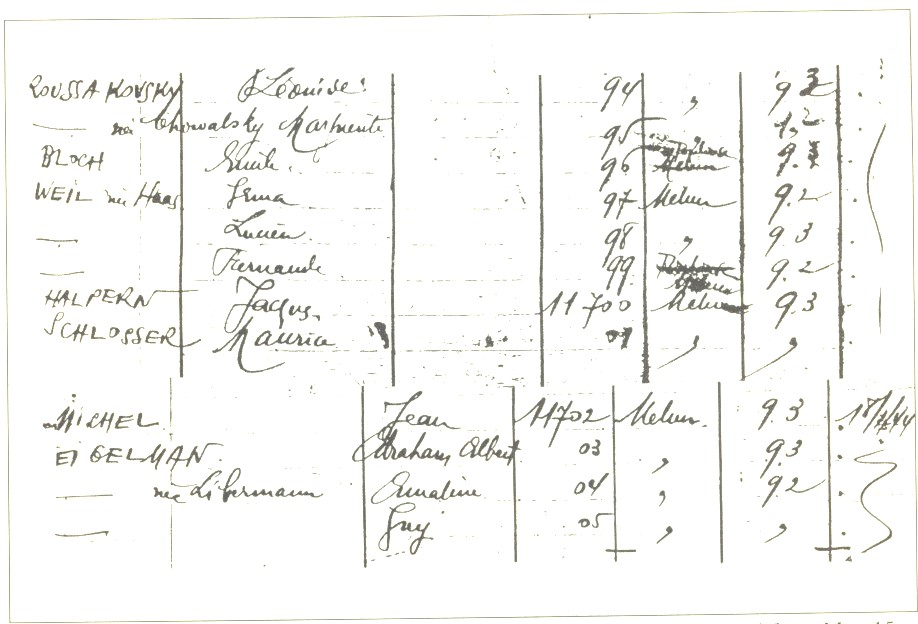 ROUSSAKOVSKY Léonide 94 " 9.3
— née Chowalsky 95 "
BLOCH Emile 96 Melun 9.3
WEIL née Haas Irma 97 Melun 9.2
— Lucien 98 " 9.3
— Fernande 99 9.2
HALPERN Jacques 11700 Melun 9.3
SCHLOSSER Maurice 01 " "
MICHEL Jean 11702 Melun. 9.3
EIGELMAN. Abraham Albert 03 " 9.3
— née Libermann 04 " 9.2
— Guy 05 " "